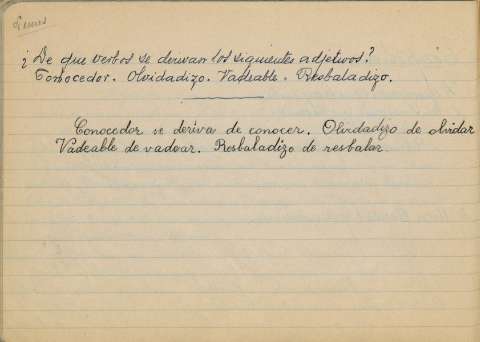 Lunes
¿De que verbos se derivan los siguientes adjetivos?
Conocedor. Olvidadizo. Vadeable. Resbaladizo.
Conocedor se deriva de conocer. Olvidadizo de olvidar
Vadeable de vadear. Resbaladizo de resbalar.